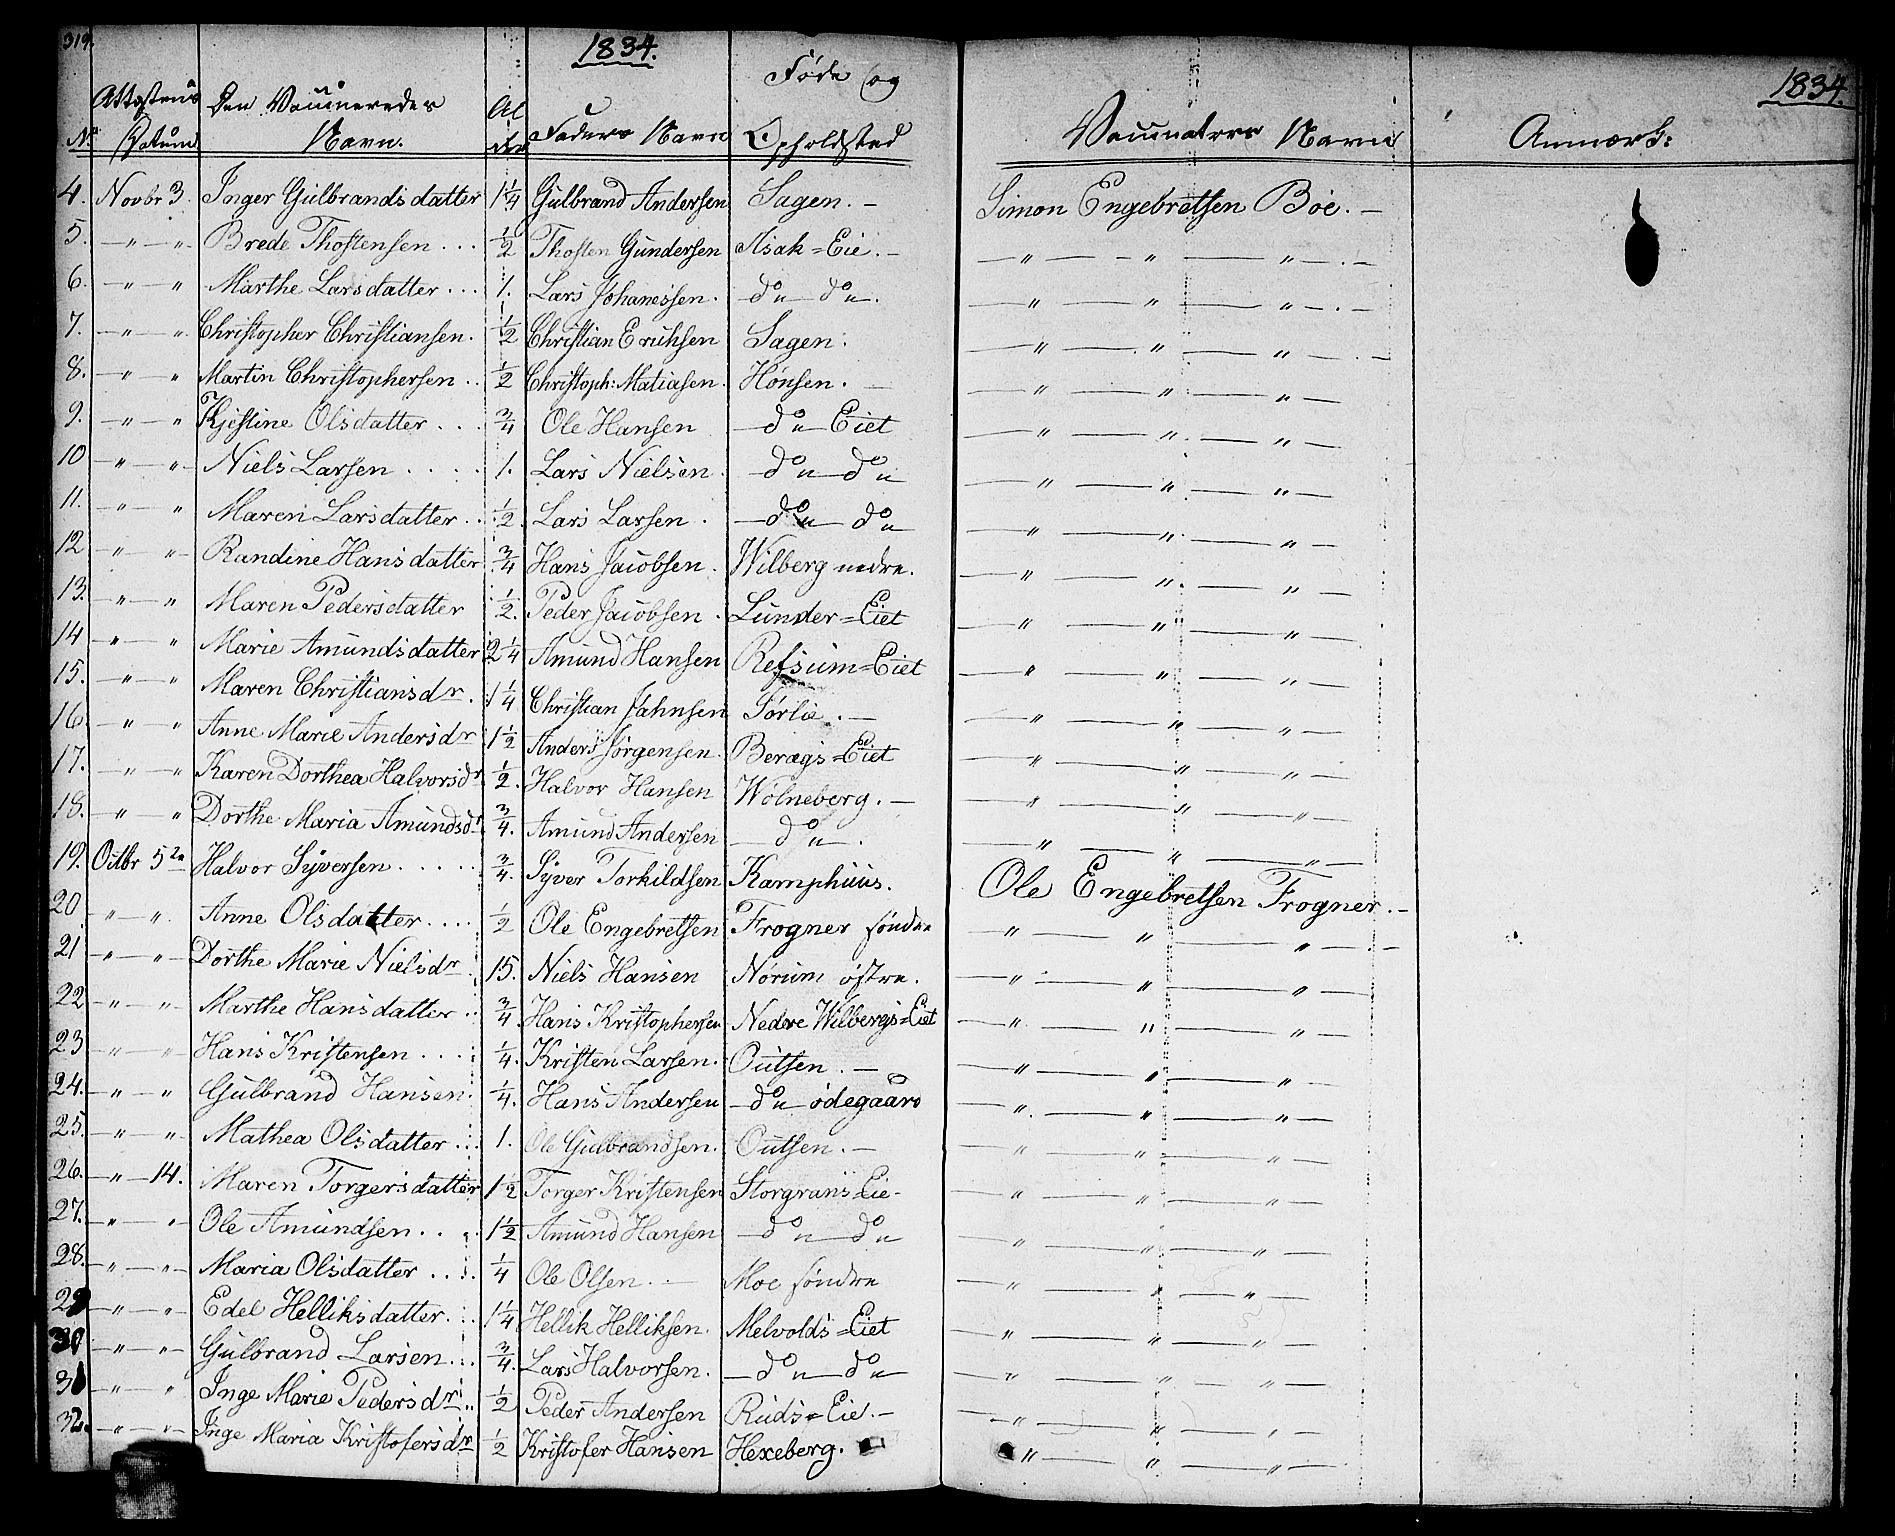 319.
1834.
1834.
Nr Attestens Datum Den Vaccineredes Navn. Alder Faders Navn Føde og Opholdsted Vaccinatørs Navn Anmærk:
4. Novbr 3. Inger Gulbrandsdatter 1 1/4 Gulbrand Andersen Sagen. — Simon Engebretsen Böe. —
5. —"—". Brede Thostensen... 1/2 Thosten Gundersen Asak=Eie. — —"— —"— —"—. —
6. —"—" Marthe Larsdatter... 1. Lars Johanessen. —do— do—. —"— —"— —"—. —
7. —"—" Christopher Christiansen. 1/2 Christian Erichsen Sagen. —"— —"— —"—. —
8. —"—" Martin Christophersen.. 1/2 Christoph: Matiasen. Hönsen. — —"— —"— —"—
9. —"—" Kjestine Olsdatter... 3/4 Ole Hansen —do—Eiet —"— —"— —"—
10 —"—"- Niels Larsen.... 1. Lars Nielsen. —do—do— —"— —"— —"—
11. —"—" Maren Larsdatter.. 1/2. Lars Larsen. —do—do— —"— —"— —"—
12 —"—"- Randine Hansdatter 3/4 Hans Jacobsen. Wilberg nedre. —"— —"— —"—
13. —"—" Maren Pedersdatter 1/2. Peder Jacobsen. Lunder=Eiet —"— —"— —"—
14 —"—" Marie Amundsdatter 2 1/4 Amund Hansen Refsum=Eiet —"— —"— —"—
15. —"—" Maren Christiansdr. 1 1/4 Christian Jahnsen Törlie. — —"— —"— —"—
16. —"—" Anne Marie Andersdr 1 1/2 Anders Jørgensen. Beraegs=Eiet —"— —"— —"—
17. —"—" Karen Dorthea Halvorsdr 1/2. Halvor Hansen Wölneberg. — —"— —"— —"—
18. —"—" Dorthe Maria Amundsdr. 3/4. Amund Andersen —do—. —"— —"— —"—
19. Octbr 5te Halvor Syversen..... 3/4. Syver Torkildsen Kamphuus. Ole Engebretsen Frogner. —
20 —"—". Anne Olsdatter.... 1/2 Ole Engebretsen Frogner søndre —"— —"— —"—. —
21 —"—"- Dorthe Marie Nielsdr. 15. Niels Hansen Nörum østre. —"— —"— —"—
22 —"—"- Marthe Hansdatter.. 3/4. Hans Kristophersen Nedre Wilbergs=Eiet —"— —"— —"—
23 —"—"- Hans Kristensen.... 1/4. Kristen Larsen. Outsen. — —"— —"— —"—
24. —"—" Gulbrand Hansen. 1/4. Hans Andersen —do— ödegaard —"— —"— —"—
25. —"—"- Mathea Olsdatter... 1. Ole Gulbrandsen. Outsen. — —"— —"— —"—
26. —"—14. Maren Torgersdatter 1 1/2 Torger Kristensen Storgrans=Eie- —"— —"— —"—
27. —"—"- Ole Amundsen... 1 1/2 Amund Hansen —do—do— —"— —"— —"—
28. —"—"- Maria Olsdatter.... 1/4 Ole Olsen. — Moe søndre —"— —"— —"—
29 —"—"- Edel Helliksdatter... 1 1/4 Hellik Helliksen. Melvolds=Eiet —"— —"— —"—
30 —"—"- Gulbrand Larsen... 3/4. Lars Halvorsen. —do—do— —"— —"— —"—
31 —"—" Inge Marie Pedersdr.. 1/2 Peder Andersen Ruds=Eie. — —"— —"— —"—
32. —"—"- Inge Maria Kristofersdr 1/2 Kristofer Hansen Hexeberg. —"— —"— —"—